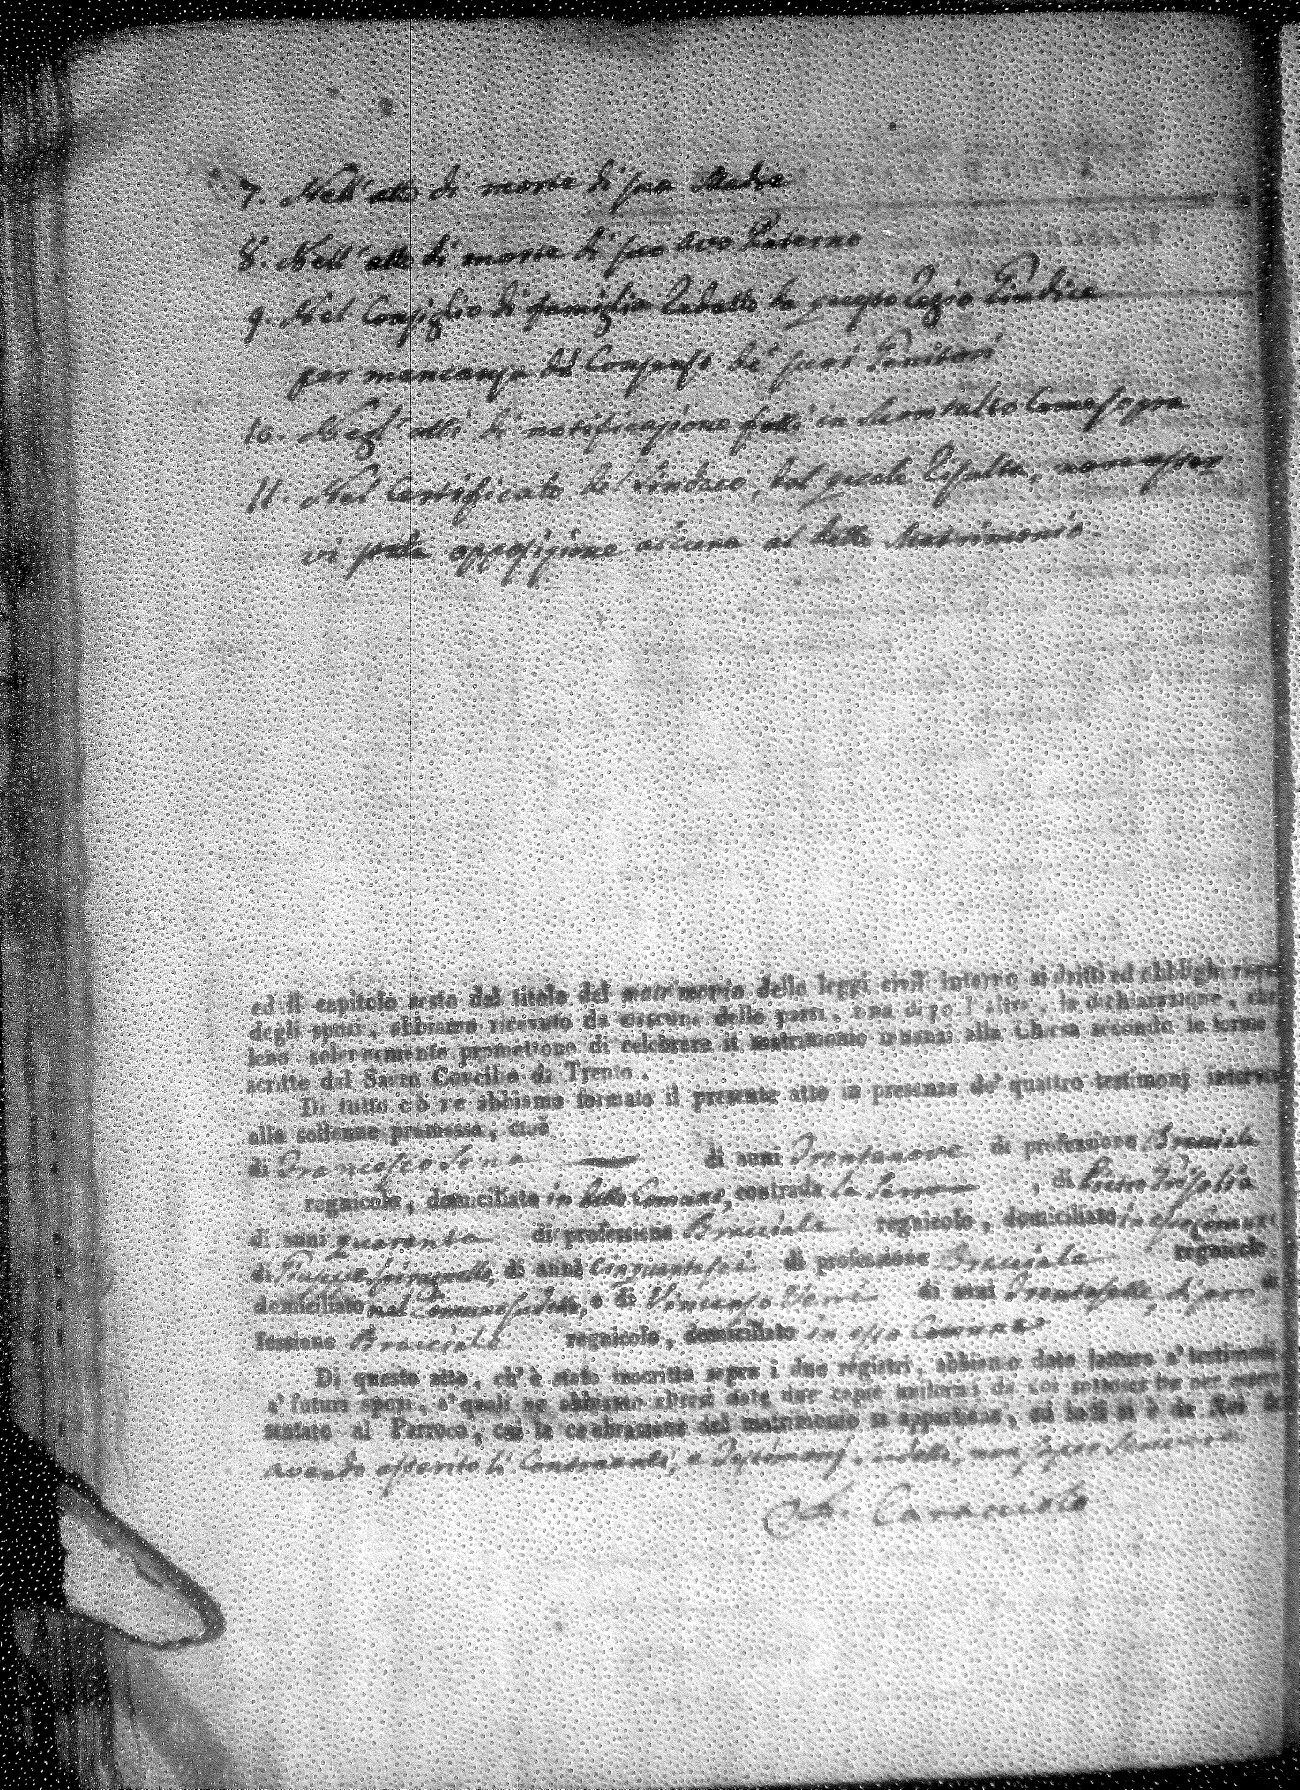 7. Nell'atto di morte di sua Madre
8. Nell'atto di morte di suo Avo Paterno
9. Nel Consiglio di famiglia da questo Regio Giudice
per mancanza del Consenso de' suoi Genitori
10. Negl'atti di notificazione fatti in
11. Nel Certificato del Sindaco, dal quale risulta, non esser
vi stata opposizione alcuna al detto Matrimonio
ed il capitolo sesto del titolo del matrimonio delle leggi civili intorno ai dritti ed obblighi
degli sposi, abbiamo ricevuto da ciascuna delle parti, una dopo l'altra, la dichiarazione, che
solennemente promettono di celebrare il matrimonio innanzi alla Chiesa secondo le forme
scritte dal Sacro Concilio di Trento.
Di tutto ciò ne abbiamo formato il presente atto in presenza de' quattro testimonj
alla sollenne promessa, cioè
di Francesco di anni Trentanove di professione Bracciale
regnicolo, domiciliato in detto Comune, contrada , di Pietro
di anni quaranta di professione Bracciale regnicolo, domiciliato
di di anni Cinquantasei di professione Bracciale regnicolo
domiciliato nel Comune , e di Vincenzo di anni Trentasette, di pro
fessione Bracciale regnicolo, domiciliato in esso Comune
Di questo atto, ch'è stato inscritto sopra i due registri, abbiamo dato lettura a' testimonj
a' futuri sposi, a' quali ne abbiamo altresì date due copie uniformi da noi sottoscritte per esser
sentate al Parroco, cui la celebrazione del matrimonio si appartiene, ed indi si è da Noi
avendo asserito li Contraenti, e Testimonj
Caracciolo